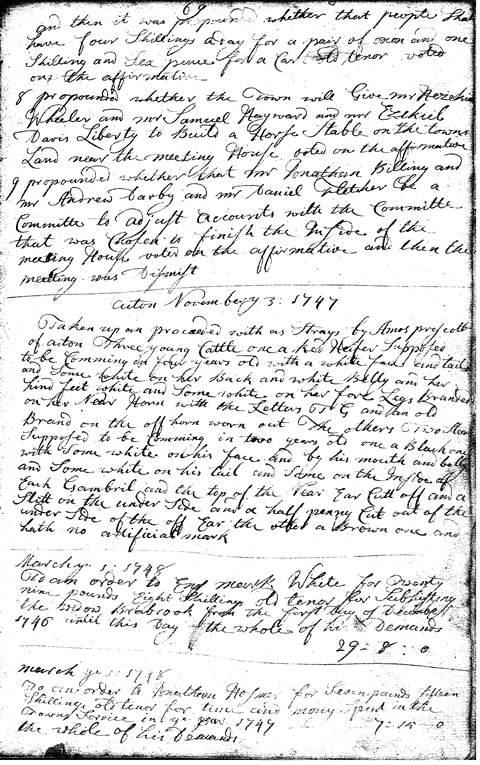 69
and then it was propounded whether that people Shall
have four Shillings a day for a pair of oxen and one
Shilling and Sea pence for a Cart old tenor voted
on the affirmative
8 propounded whether the Town will Give mr Hezekiah
Wheeler and mr Samuel Hayward and mr Ezekiel
Davis Liberty to Build a Horse Stable on the towns
Land near the meeting House voted on the affirmative
9 propounded whether that Mr Jonathan Billing and
mr Andrew Darby and mr Daniel Fletcher be a
Committe to adjust accounts with the Committe
that was Chosen to finish the Inside of the
meeting House voted on the affirmative and then the
meeting was Dismist
acton November ye 3: 1747
Taken up an proceeded with as Strays by Amos prescott
of acton Three young Cattle one a Red Heifer Supposed
to be Comming on four years old with a white face and tail
and Some white on her Back and white Belly and her
hind feet white and Some white on her fore Legs Branded
on her Near Horn with the Letters and an old
Brand on the off horn worn out The others Two Steers
Supposed to be Comming in two years old one a Black one
with Some white on his face and by his mouth and belly
and Some white on his tail and Some on the Inside of
Each Gambril and the top of the Near Ear Cutt off and a
Slitt on the under Side and a half penny Cut out of the
under Side of the off Ear the other a Brown one and
hath no artificial mark
March ye 1: 1748
To an order to mark White for Twenty
nine pounds Eight Shillings old tenor for Subsisting
the widow Brabrook from the first Day of December
1746 until this Day the whole of his Demands
29: 8: 0
march ye 1: 1748
To an order to Jonathan Hosmer for Seven pounds fifteen
Shillings old tenor for time and money Spent in the
Towns Service in ye year 1747 7: 15 0
the whole of his Demands